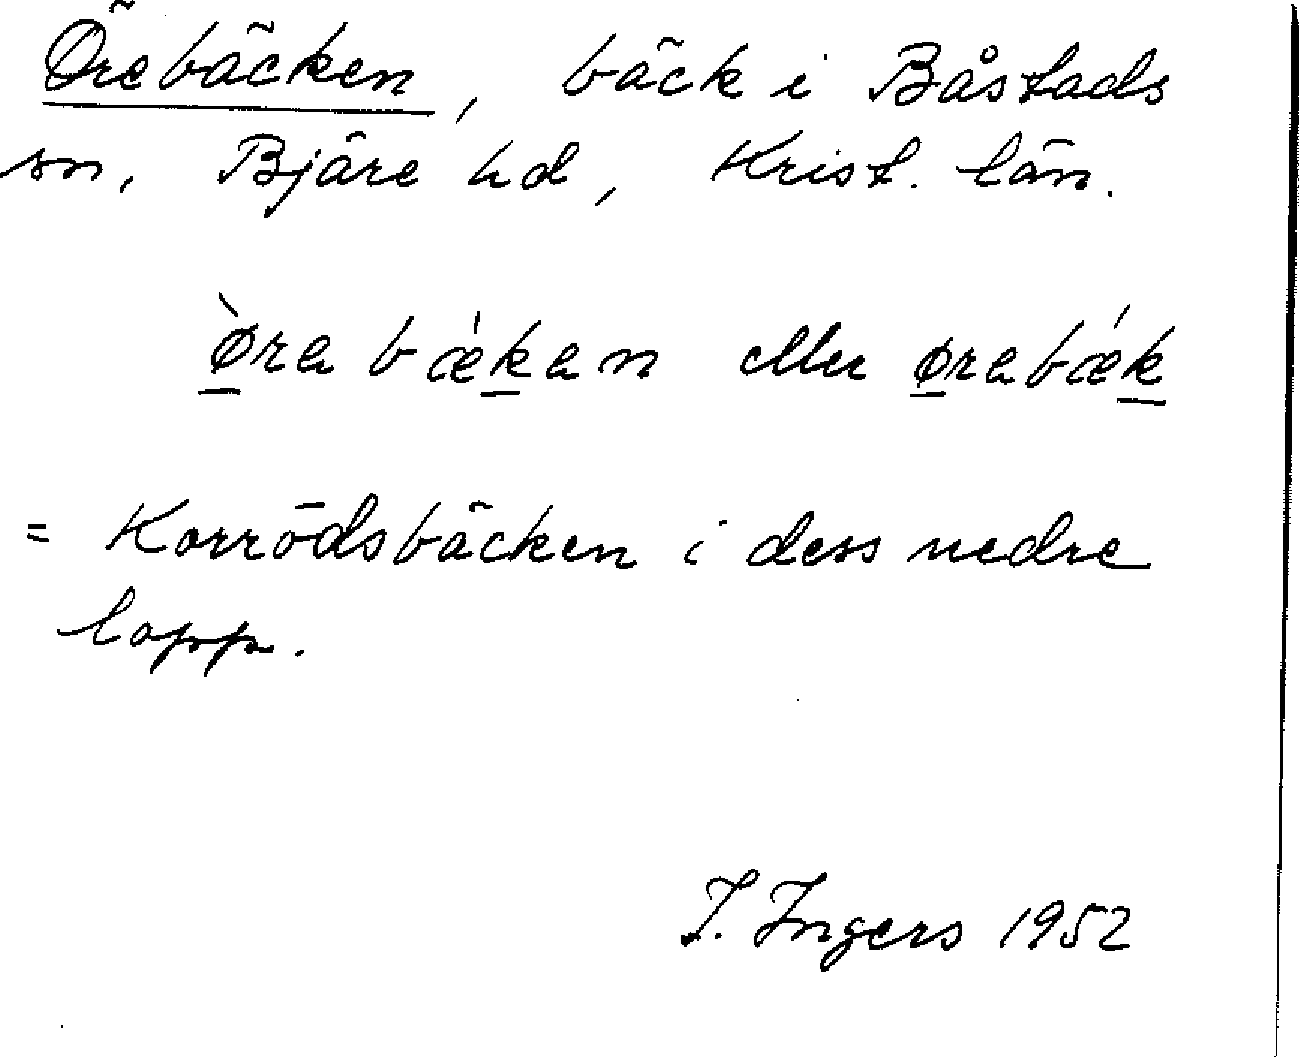 Örebäcken, bäck i Båstads
sn, Bjäre hd, Krist. län.
ø̱̀rabæ̀ḵan eller ø̱rabǽḵ
= Korrödsbäcken i dess nedre
lopp.
I. Ingers 1952